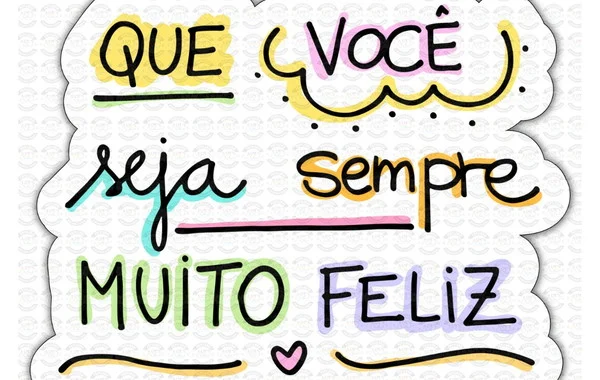 QUE VOCÊ
seja sempre
MUiTO FELiZ